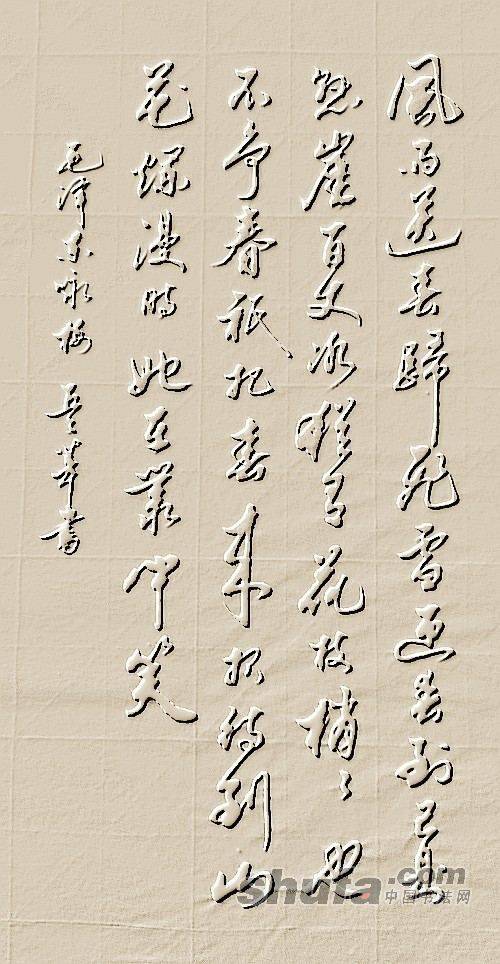 風雨送春歸飛雪迎春到已是
悬崖百丈冰猶有花枝俏々也
不争春祇把春来报待到山
花爛漫時她在叢中笑
毛泽东咏梅 華書
shufa.com
中国书法网